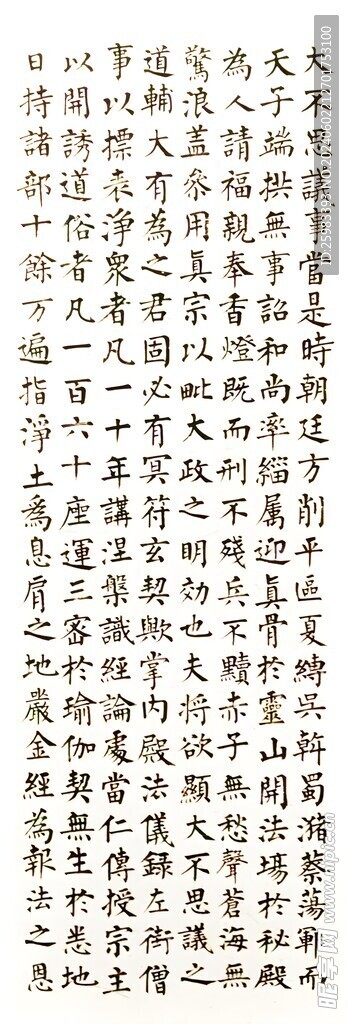 大不思議事當是時朝廷方削平區夏縛吳斡蜀潴蔡蕩鄆而
天子端拱無事詔和尚率緇属迎真骨於靈山開法場於秘殿
為人請福親奉香燈既而刑不殘兵不黷赤子無愁聲蒼海無
驚浪盖叅用真宗以毗大政之明効也夫將欲顯大不思議之
道輔大有為之君固必有冥符玄契歟掌内殿法儀錄左街僧
事以摽表淨衆者凡一十年講涅槃識經論處當仁傳授宗主
以開誘道俗者凡一百六十座運三密於瑜伽契無生於悉地
日持諸部十餘万遍指淨土爲息肩之地嚴金經為報法之恩
ID:25983393 NO:20240602212701753100
昵享网 www.nipic.cn